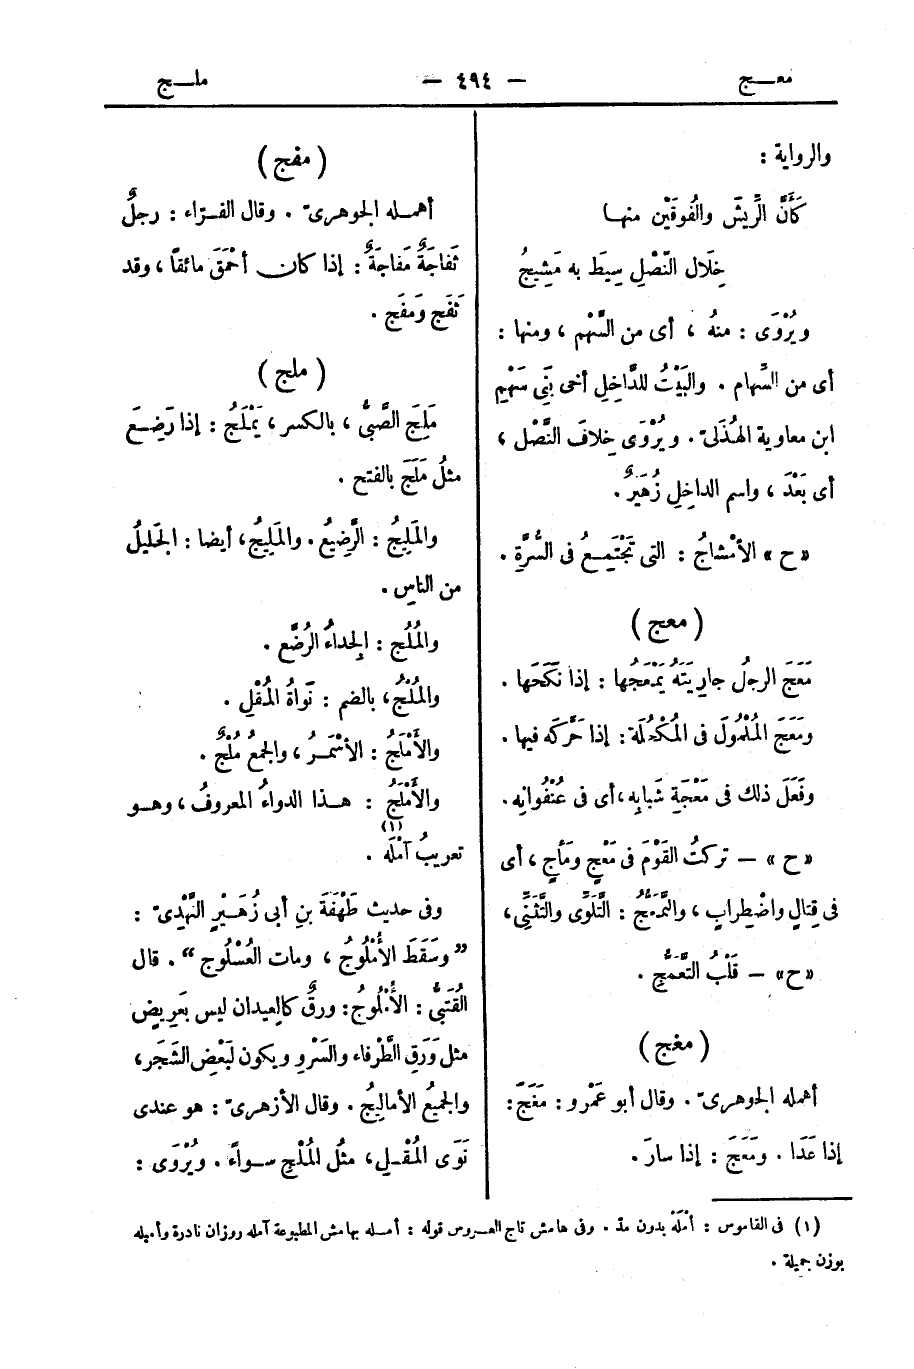 معـــج
— ٤٩٤ —
ملـــج
والرواية :
كَأَنَّ الرِّيشَ والفُوقَيْنِ منهـا
خِلَال النَّصْلِ سِيطَ به مَشِيجُ
ويُرْوَى : منهُ ، أى من السَّهْم ، ومنها :
أى من السِّهام . والبَيْتُ للدَّاخِلِ أخى بَنِى سَهْمِ
ابن معاوية الهُذَلىّ . ويُرْوَى خِلافَ النَّصْل ،
أى بَعْدَ ، واسم الداخِلِ زُهَيرٌ .
« ح » الأمْشاجُ : التى تَجْتَمِــعُ فى السُّرَّةِ .
( معج )
مَعَجَ الرجلُ جارِيَتَهُ يَمْعَجُها : إذا نَكَحَها .
ومَعَجَ المُلْمُولَ فى المُكْحُلَة : إذا حَرَّكَه فيها .
وفَعَلَ ذلك فى مَعْجَةِ شَبابِه ، أى فى عُنْفُوانِه .
« ح » — تركتُ القَوْمَ فى مَعْجٍ ومَأْجٍ ، أى
فى قِتالٍ واضْطِرابٍ ، والتَّمَعُّجُ : التَّلَوِّى والتَّثَنِّى ،
« ح » — قَلْبُ التَّعَمُّجِ .
( مغج )
أهمله الجوهرىّ . وقال أبو عَمْرو : مَغَجَ :
إذا عَدَا . ومَغَجَ : إذا سارَ .
( مفج )
أهمـله الجوهرىّ . وقال الفـرّاء : رجلٌ
ثَفاجَةٌ مَفاجَةٌ : إذا كان أحْمَقَ مائقاً ، وقد
ثَفَجَ ومَفَج .
( ملج )
مَلِجَ الصَّبِىُّ ، بالكسر ، يَمْلَجُ : إذا رَضِـعَ
مثلُ مَلَجَ بالفتح .
والمَلِيجُ : الرَّضِيعُ . والمَلِيجُ ، أيضا : الجَلِيلُ
من الناسِ .
والمُلُج : الجِداءُ الرُضَّع .
والمُلْجُ ، بالضم : نَواةُ المُقْلِ .
والأَمْلَجُ : الأسْمَـرُ ، والجمعُ مُلْجٌ .
والأَمْلَجُ : هـذا الدواءُ المعروفُ ، وهـو
تعريبُ آمْلَه (١) .
وفى حديث طَهْفَةَ بنِ أبى زُهَـيْرٍ النَّهْدِىّ :
” وسَقَطَ الأُمْلُوجُ ، ومات العُسْلُوج “ . قال
القُتَبِىُّ : الأُمْلُوجُ : ورقٌ كالعِيدان ليس بعَرِيضٍ
مثل وَرَقِ الطَّرْفاء والسَّرْوِ ويكون لبَعْضِ الشَجَر ،
والجميعُ الأمالِيجُ . وقال الأزهرىّ : هو عندى
نَوَى المُقْـلِ ، مثلُ المُلْجِ سـواءً . ويُرْوَى :
(١) فى القاموس : أَمْلَهْ بدون مدّ . وفى هامش تاج العروس قوله : أمـله بهامش المطبوعة آمله روزان نادرة وأميله
بوزن جميلة .